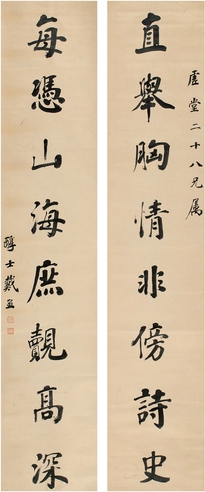 虛堂二十八兄属
直舉胸情非傍詩史
每憑山海庶覿高深
醇士戴熙